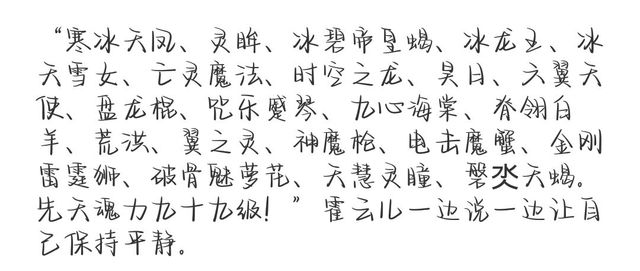 “寒冰天凤、灵眸、冰碧帝皇蝎、冰龙王、冰
天雪女、亡灵魔法、时空之龙、昊日、六翼天
使、盘龙棍、咒乐蹙琴、九心海棠、脊翎白
羊、荒洪、翼之灵、神魔枪、电击魔蟹、金刚
雷霆狮、破骨魅萝花、天慧灵瞳、磬天蝎。
先天魂力九十九级！”霍云儿一边说一边让自
己保持平静。